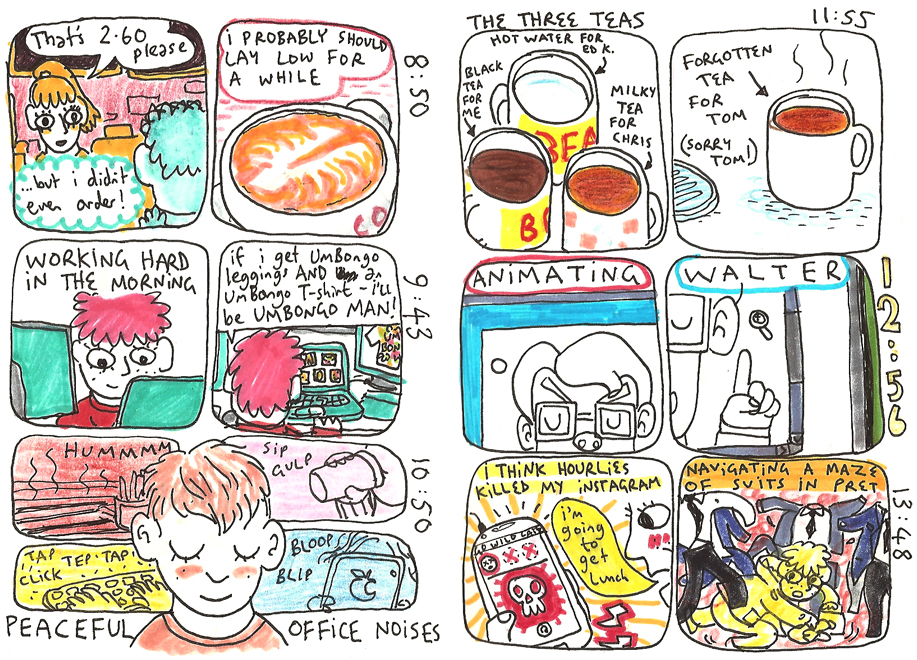 That's 2.60
please
...but i didn't
even order!
i PROBABLY SHOULD
LAY LOW FOR
A WHILE
8:50
WORKING HARD
IN THE MORNING
if i get UMBONGO
leggings AND an
UMBONGO T-shirt - i'll
be UMBONGO MAN!
9:43
HUMMMM
SIP
GULP
TAP TEP-TAP
CLICK
BLOOP
BLIP
10:50
PEACEFUL OFFICE NOISES
THE THREE TEAS
11:55
HOT WATER FOR
ED K.
BLACK
TEA
FOR
ME
MILKY
TEA
FOR
CHRIS
BEA
B
FORGOTTEN
TEA
FOR
TOM
(SORRY
TOM!)
ANIMATING
WALTER
12:56
i THINK HOURLIES
KILLED MY INSTAGRAM
i'm
going
to
get
lunch
NAVIGATING A MAZE
OF SUITS IN PRET
13:48